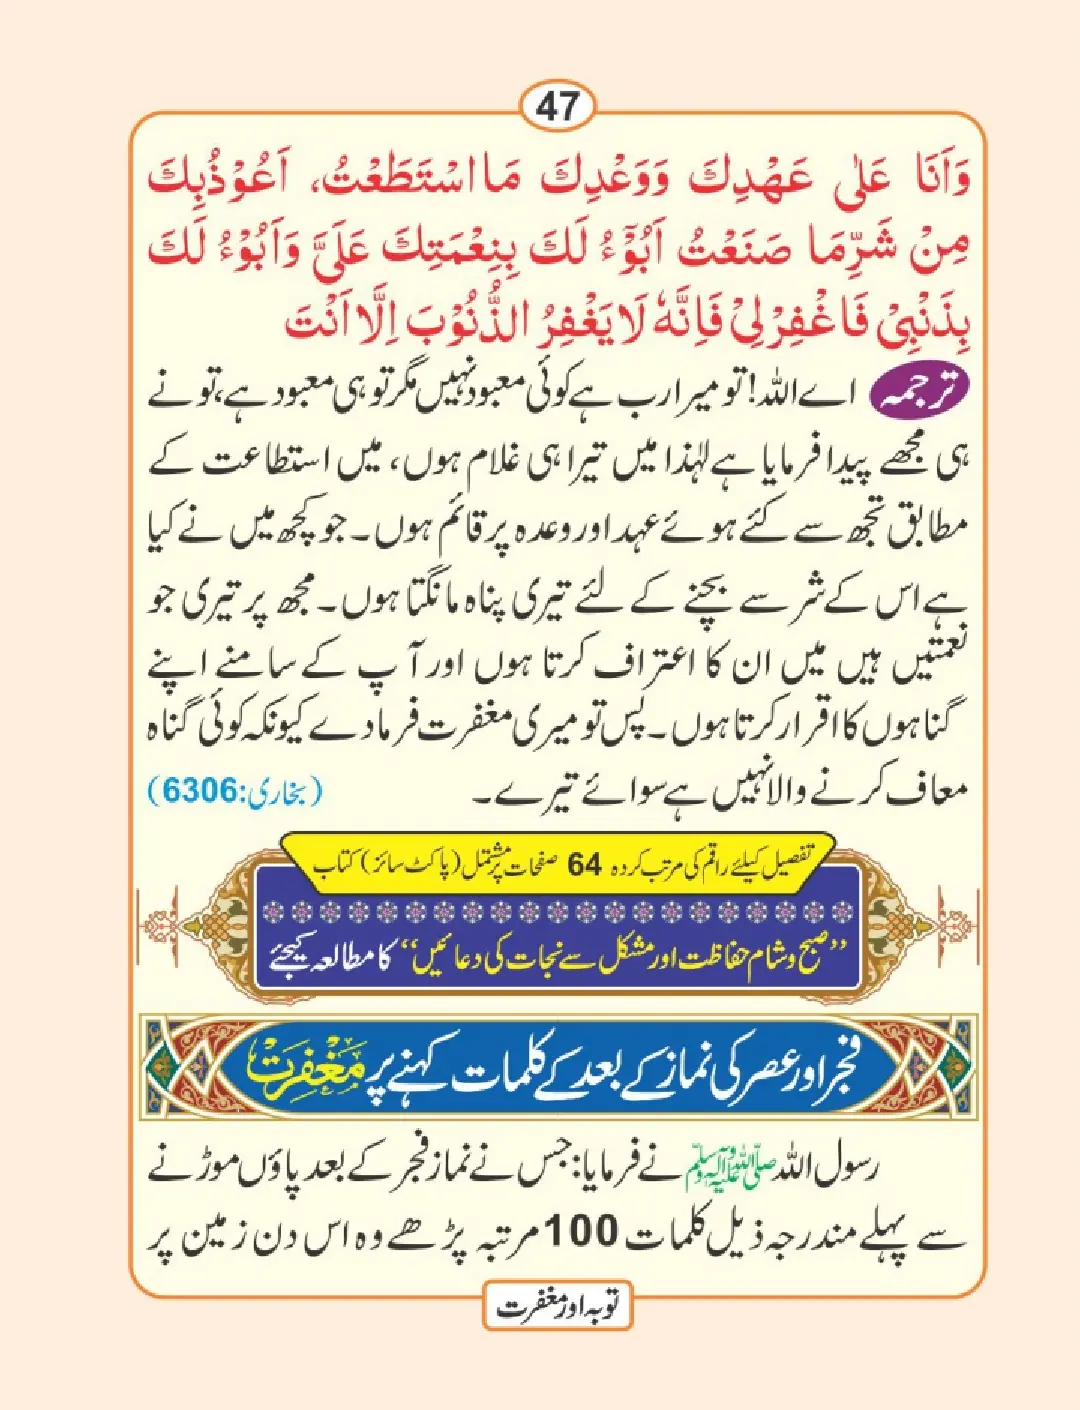 47
وَاَنَا عَلٰى عَهْدِكَ وَوَعْدِكَ مَا اسْتَطَعْتُ، اَعُوْذُبِكَ
مِنْ شَرِّمَا صَنَعْتُ اَبُوْٓءُ لَكَ بِنِعْمَتِكَ عَلَيَّ وَاَبُوْءُ لَكَ
بِذَنْبِيْ فَاغْفِرْلِيْ فَاِنَّهٗ لَا يَغْفِرُ الذُّنُوْبَ اِلَّا اَنْتَ
ترجمہ اے اللہ! تو میرا رب ہے کوئی معبود نہیں مگر تو ہی معبود ہے، تو نے
ہی مجھے پیدا فرمایا ہے لہٰذا میں تیرا ہی غلام ہوں، میں استطاعت کے
مطابق تجھ سے کئے ہوئے عہد اور وعدہ پر قائم ہوں۔ جو کچھ میں نے کیا
ہے اس کے شر سے بچنے کے لئے تیری پناہ مانگتا ہوں۔ مجھ پر تیری جو
نعمتیں ہیں میں ان کا اعتراف کرتا ہوں اور آپ کے سامنے اپنے
گناہوں کا اقرار کرتا ہوں۔ پس تو میری مغفرت فرما دے کیونکہ کوئی گناہ
معاف کرنے والا نہیں ہے سوائے تیرے۔ (بخاری:6306)
تفصیل کیلئے راقم کی مرتب کردہ 64 صفحات پر مشتمل (پاکٹ سائز) کتاب
”صبح و شام حفاظت اور مشکل سے نجات کی دعائیں“ کا مطالعہ کیجئے
فجر اور عصر کی نماز کے بعد کے کلمات کہنے پر مَغْفِرَتْ
رسول اللہ صلی اللہ علیہ وآلہ وسلم نے فرمایا: جس نے نماز فجر کے بعد پاؤں موڑنے
سے پہلے مندرجہ ذیل کلمات 100 مرتبہ پڑھے وہ اس دن زمین پر
توبہ اور مغفرت